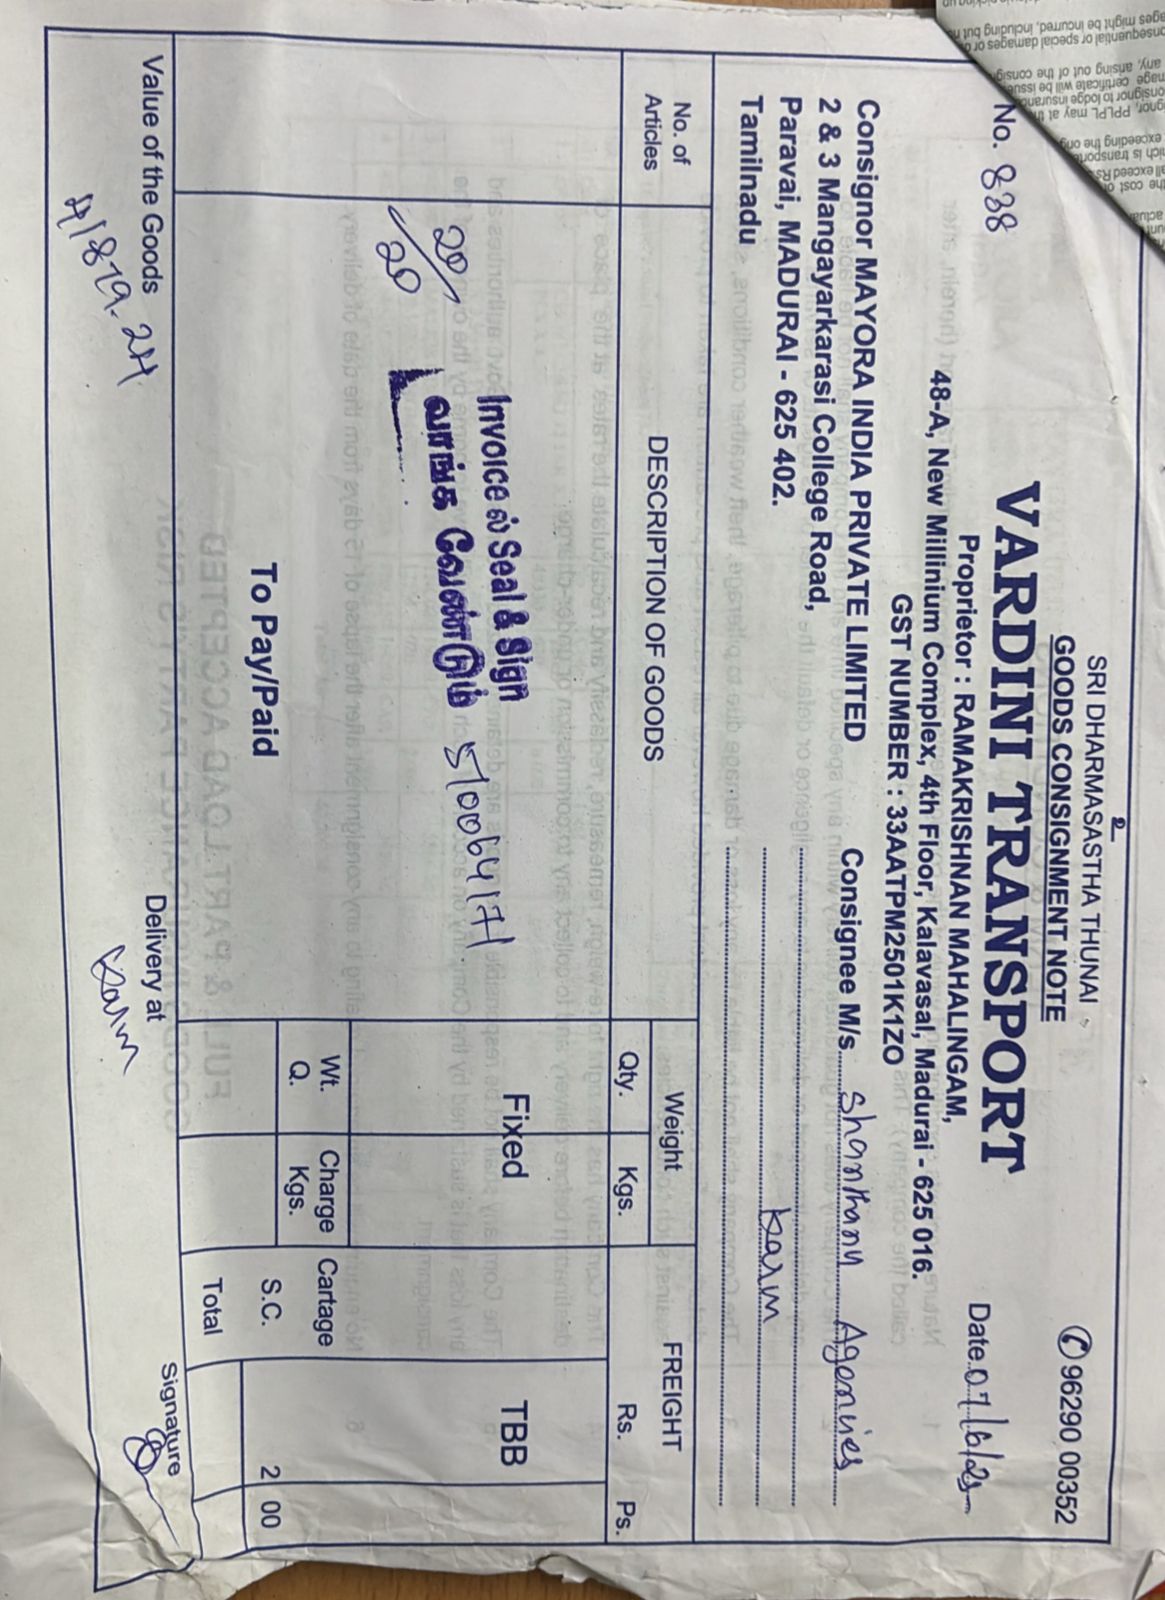 SRI DHARMASASTHA THUNAI
GOODS CONSIGNMENT NOTE
✆ 96290 00352
VARDINI TRANSPORT
No. 838
Proprietor : RAMAKRISHNAN MAHALINGAM,
Date 07/6/25
48-A, New Millinium Complex, 4th Floor, Kalavasal, Madurai - 625 016.
GST NUMBER : 33AATPM2501K1ZO
Consignor MAYORA INDIA PRIVATE LIMITED
2 & 3 Mangayarkarasi College Road,
Paravai, MADURAI - 625 402.
Tamilnadu
Consignee M/s. Shanthanu Agencies
Karur
No. of Articles
DESCRIPTION OF GOODS
Weight
Qty. Kgs.
FREIGHT
Rs. Ps.
20/20
Invoice ல் Seal & Sign
வாங்க வேண்டும்
5100641171
Fixed
TBB
Wt. Q.
Charge Kgs.
Cartage
To Pay/Paid
S.C. 2 00
Total
Value of the Goods
Delivery at
Karur
Signature